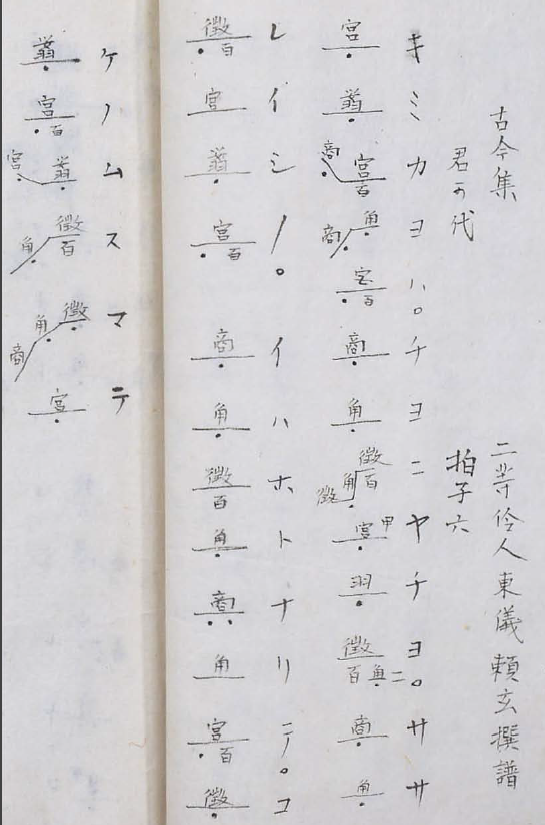 古今集
二等伶人東儀頼玄撰譜
君可代
拍子六
キミカヨハ。チヨニヤチヨニ。ササ
宮 商宮百 角商 宮百 商 角 徴百角徴 宮甲 羽 徴百角 商 角
レイシノ。イハホトナリテ。コ
徴百 宮 宮百 商 角 徴百 角 商 角 宮百 徴
ケノムスマテ
宮百 宮 徴百角 徴角商 宮